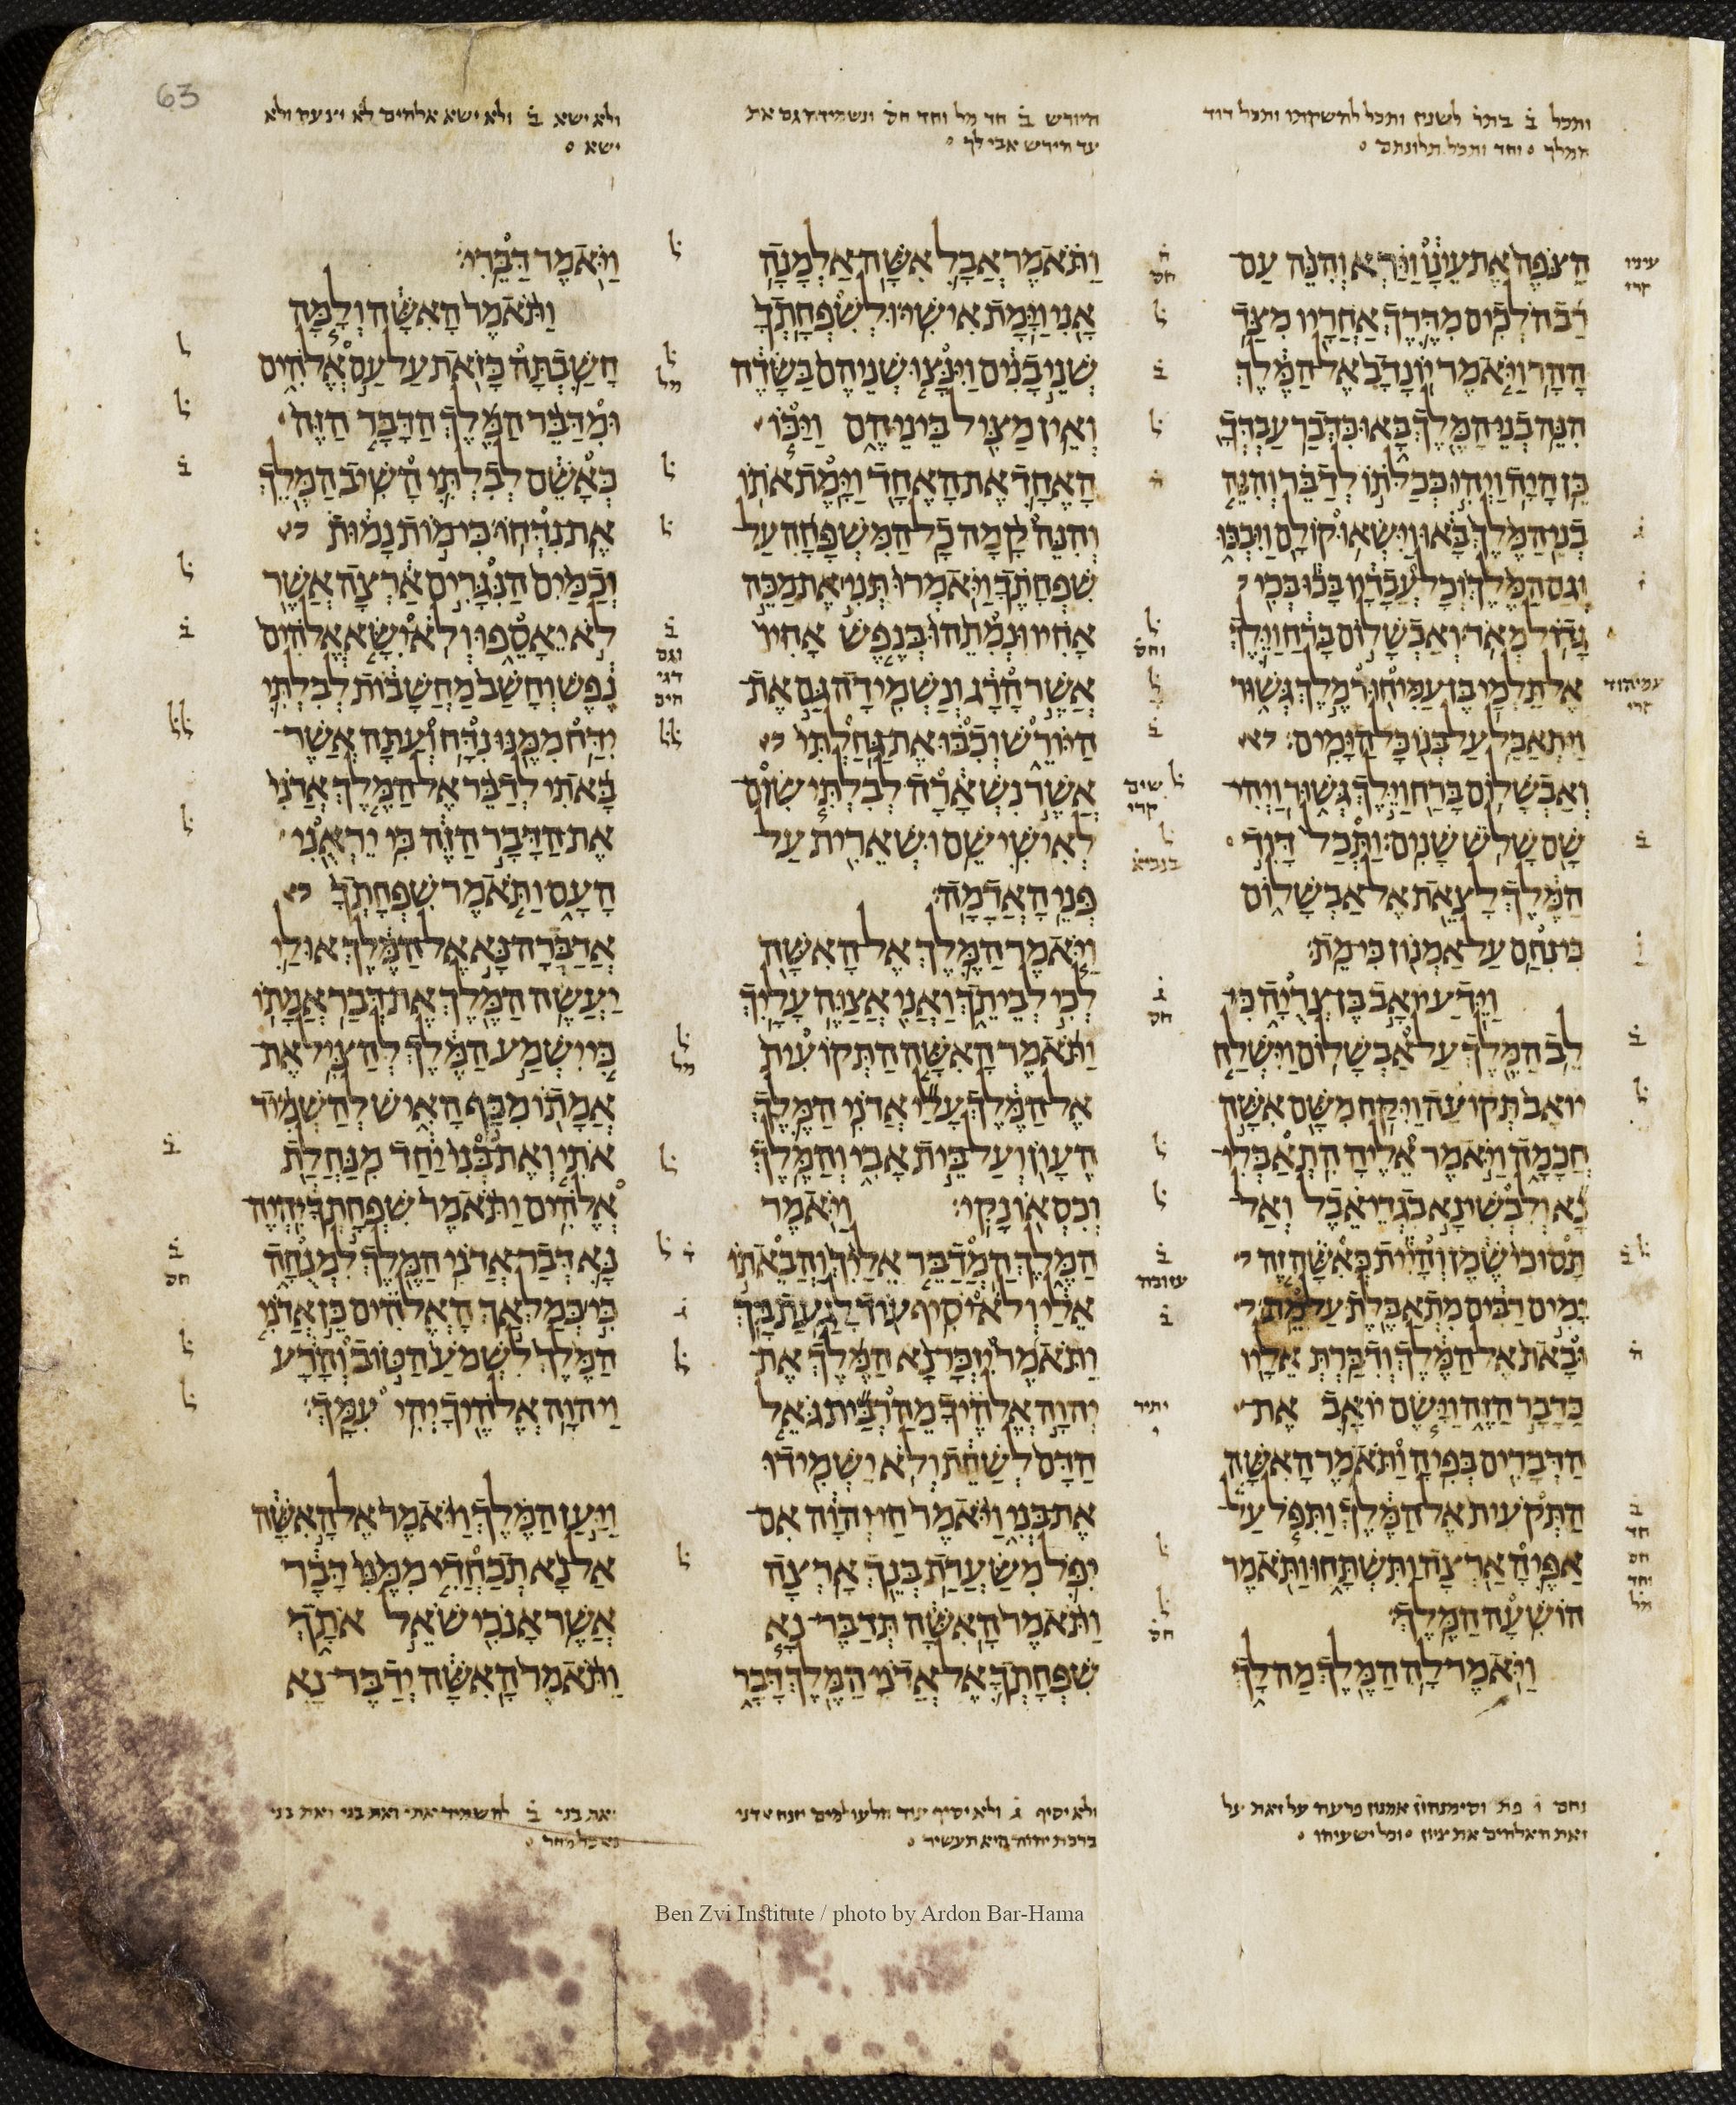 63
ותכל ב̇ בתר̇ לשנין ותכל להשקותו ותכל דוד
המלך ׄ וחד ותכל תלונתם ׄ
היורש ב̇ חד מל וחד חס̇ ונשמידה גם את
עד הירש אבילך ׄ
ולא ישא ב̇ ולא ישא אלהים לא ייעף ולא
ישא ׄ
הצפה את עינו וירא והנה עם
רב הלכים מדרך אחריו מצד
ההר ויאמר יונדב אל המלך
הנה בני המלך באו כדבר עבדך
כן היה ויהי ככלתו לדבר והנה
בני המלך באו וישאו קולם ויבכו
וגם המלך וכל עבדיו בכו בכי
גדול מאד ואבשלום ברח וילך
אל תלמי בן עמיחור מלך גשור
ויתאבל על בנו כל הימים
ואבשלום ברח וילך גשור ויהי
שם שלש שנים ותכל דוד
המלך לצאת אל אבשלום
כי נחם על אמנון כי מת
וידע יואב בן צריה כי
לב המלך על אבשלום וישלח
יואב תקועה ויקח משם אשה
חכמה ויאמר אליה התאבלי
נא ולבשי נא בגדי אבל ואל
תסוכי שמן והיית כאשה זה
ימים רבים מתאבלת על מת
ובאת אל המלך ודברת אליו
כדבר הזה וישם יואב את
הדברים בפיה ותאמר האשה
התקעית אל המלך ותפל על
אפיה ארצה ותשתחו ותאמר
הושעה המלך
ויאמר לה המלך מה לך
ותאמר אבל אשה אלמנה
אני וימת אישי ולשפחתך
שני בנים וינצו שניהם בשדה
ואין מציל ביניהם ויכו
האחד את האחד וימת אתו
והנה קמה כל המשפחה על
שפחתך ויאמרו תני את מכה
אחיו ונמתהו בנפש אחיו
אשר הרג ונשמידה גם את
היורש וכבו את גחלתי
אשר נשארה לבלתי שום
לאישי שם ושארית על
פני האדמה
ויאמר המלך אל האשה
לכי לביתך ואני אצוה עליך
ותאמר האשה התקועית
אל המלך עלי אדני המלך
העון ועל בית אבי והמלך
וכסאו נקי ויאמר
המלך המדבר אליך והבאתו
אלי ולא יסיף עוד לגעת בך
ותאמר יזכר נא המלך את
יהוה אלהיך מהרבית גאל
הדם לשחת ולא ישמידו
את בני ויאמר חי יהוה אם
יפל משערת בנך ארצה
ותאמר האשה תדבר נא
שפחתך אל אדני המלך דבר
ויאמר דברי
ותאמר האשה ולמה
חשבתה כזאת על עם אלהים
ומדבר המלך הדבר הזה
כאשם לבלתי השיב המלך
את נדחו כי מות נמות
וכמים הנגרים ארצה אשר
לא יאספו ולא ישא אלהים
נפש וחשב מחשבות לבלתי
ידח ממנו נדח ועתה אשר
באתי לדבר אל המלך אדני
את הדבר הזה כי יראני
העם ותאמר שפחתך
אדברה נא אל המלך אולי
יעשה המלך את דבר אמתו
כי ישמע המלך להציל את
אמתו מכף האיש להשמיד
אתי ואת בני יחד מנחלת
אלהים ותאמר שפחתך יהיה
נא דבר אדני המלך למנחה
כי כמלאך האלהים כן אדני
המלך לשמע הטוב והרע
ויהוה אלהיך יהי עמך
ויען המלך ויאמר אל האשה
אל נא תכחדי ממני דבר
אשר אנכי שאל אתך
ותאמר האשה ידבר נא
ולא יסיף ג̇ ולא יסיף עוד
ברכת יהוה היא תעשיר ׄ
ואת בני ב̇ להשמיד אתי ואת בני
Ben Zvi Institute / photo by Ardon Bar-Hama